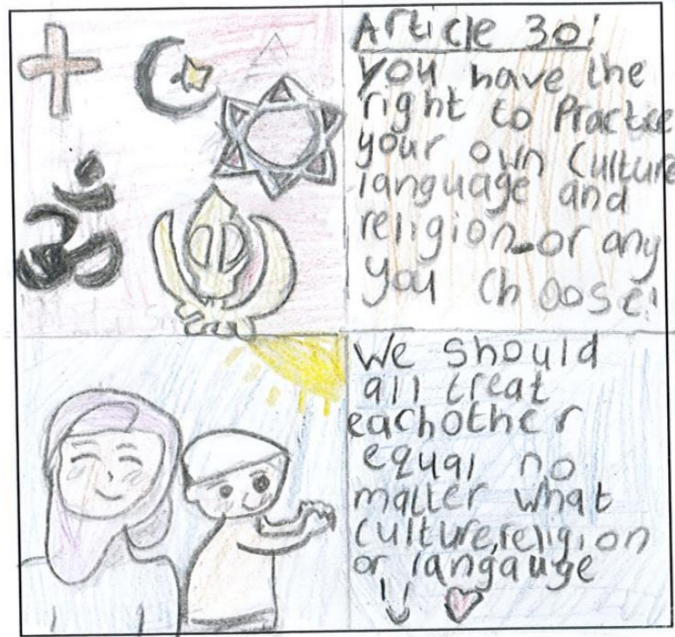 Article 30!
you have the
right to Practice
your own Culture
language and
religion-or any
you choose!
We should
all treat
eachother
equal no
matter what
culture,religion
or langauge